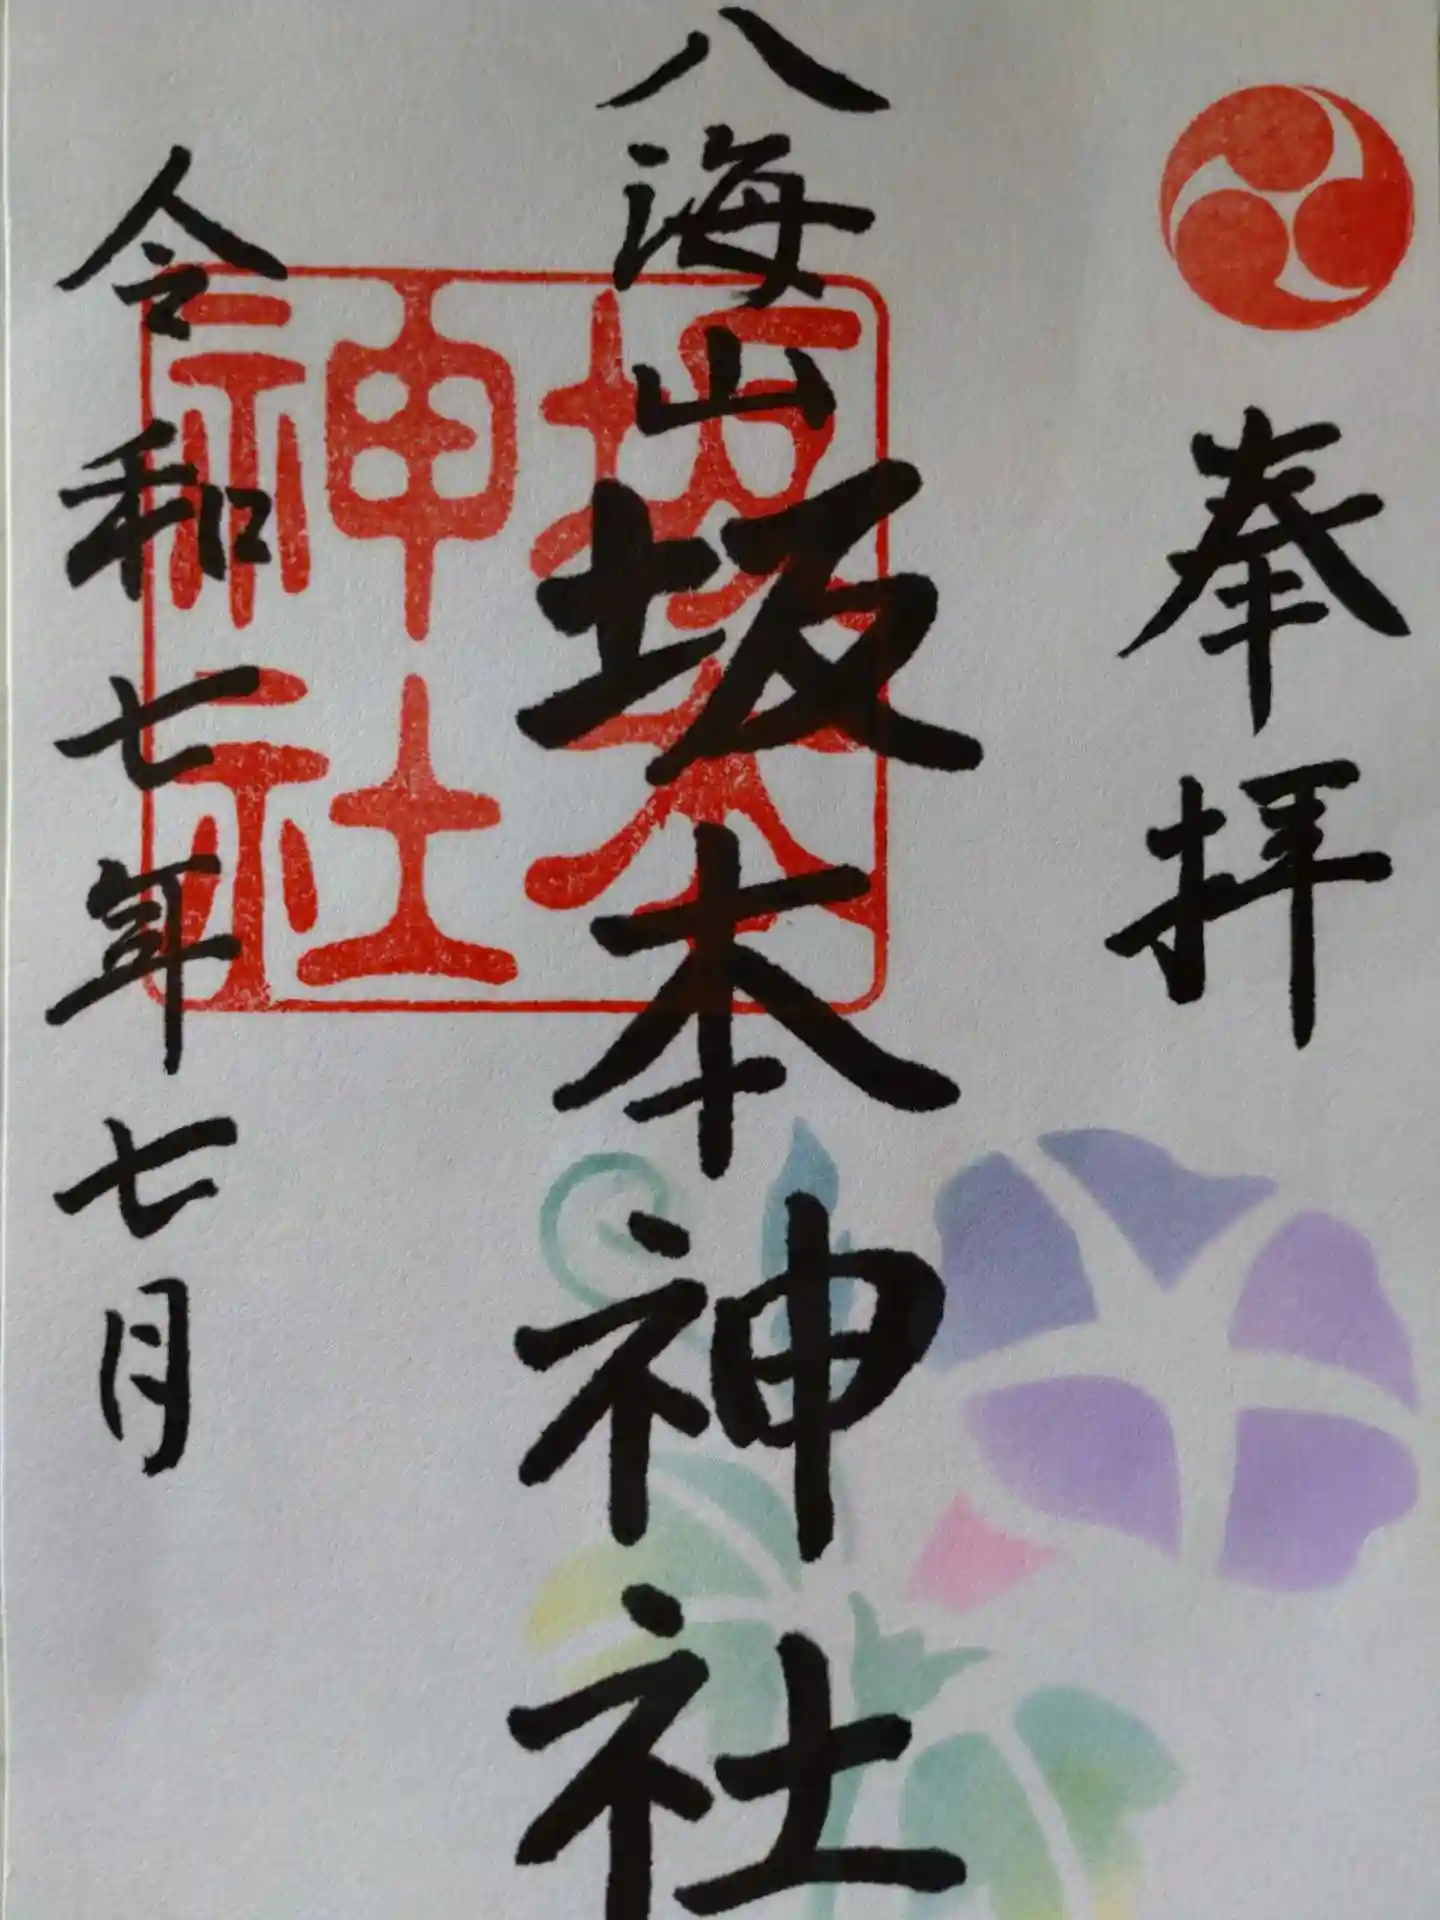 奉拝
八海山
坂本神社
坂本
神社
令和七年七月